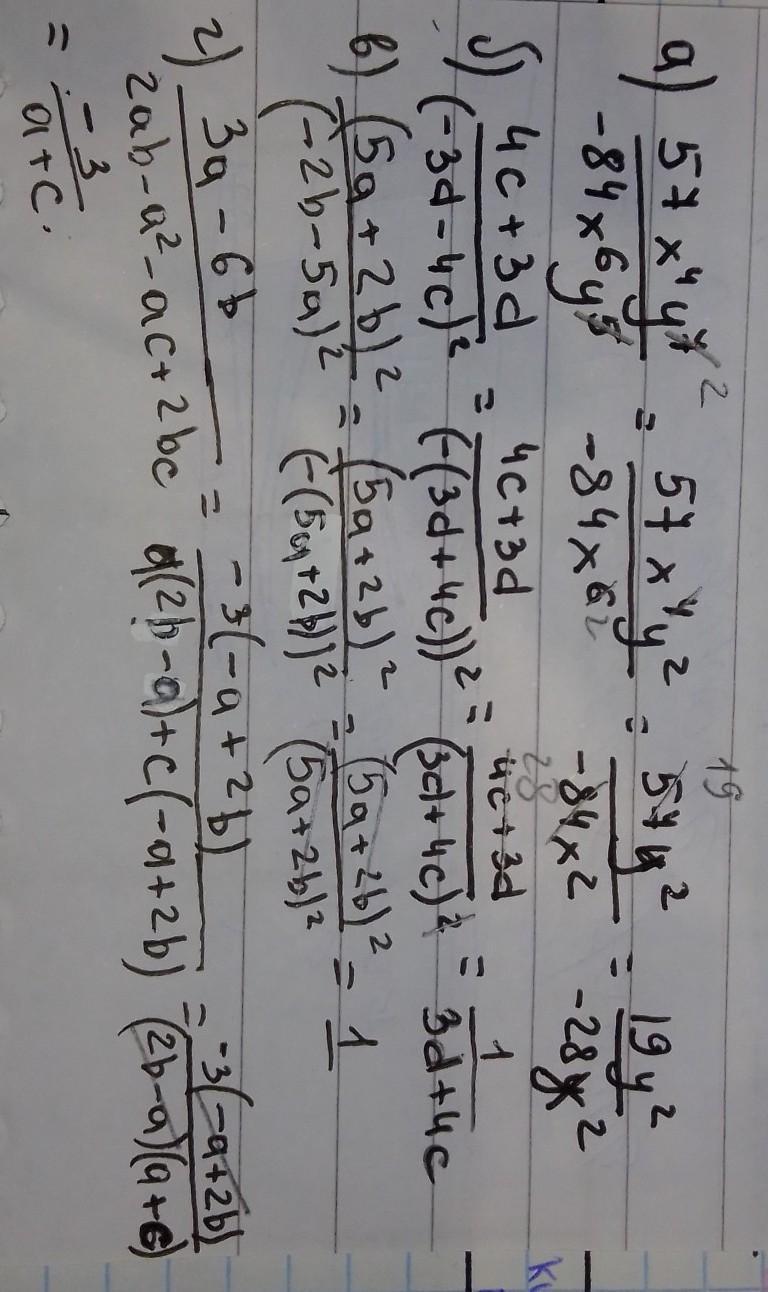 а) 57x⁴y⁷ ² / -84x⁶y⁵ = 57x⁴y² / -84x⁶ ² = 57y² 19 / -84x² 28 = 19y² / -28x²
б) 4c+3d / (-3d-4c)² = 4c+3d / (-(3d+4c))² = 4c+3d / (3d+4c)² = 1 / 3d+4c
в) (5a+2b)² / (-2b-5a)² = (5a+2b)² / (-(5a+2b))² = (5a+2b)² / (5a+2b)² = 1
г) 3a-6b / 2ab-a²-ac+2bc = -3(-a+2b) / a(2b-a)+c(-a+2b) = -3(-a+2b) / (2b-a)(a+c)
= -3 / a+c.